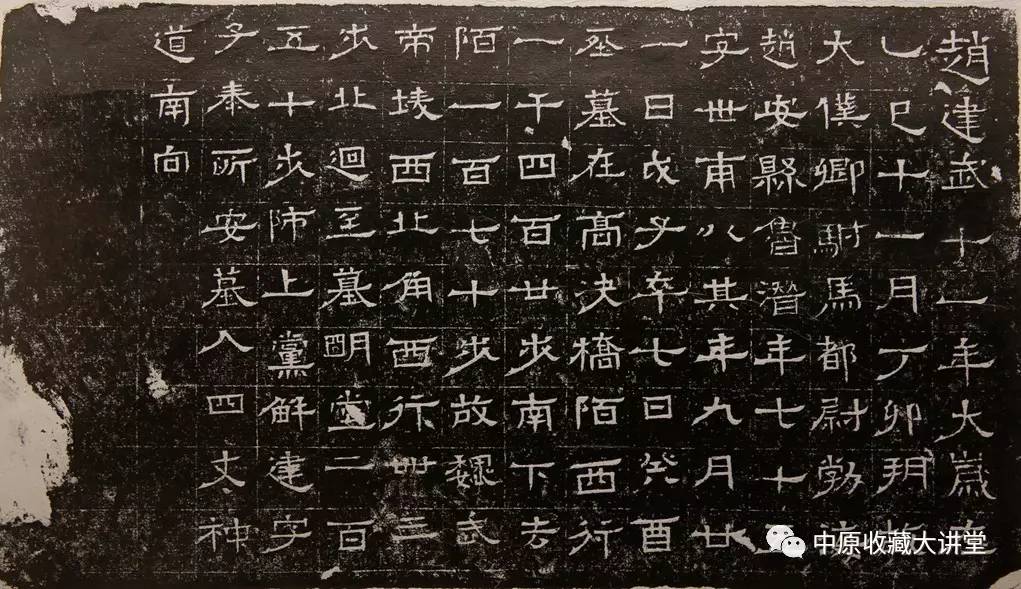 趙建武十一年大歲
乙巳十一月丁卯朔
大僕卿駙馬都尉勃
趙安縣魯潛年七十
字世甫以其年九月廿
一日戊子卒七日癸酉
葬墓在高決橋陌西行
一千四百廿步南下去
陌一百七十步故魏武
帝陵西北角西行卌三
步北迴至墓明堂二百
五十步師上黨解建字
子泰所安墓入四丈神
道南向
中原收藏大讲堂